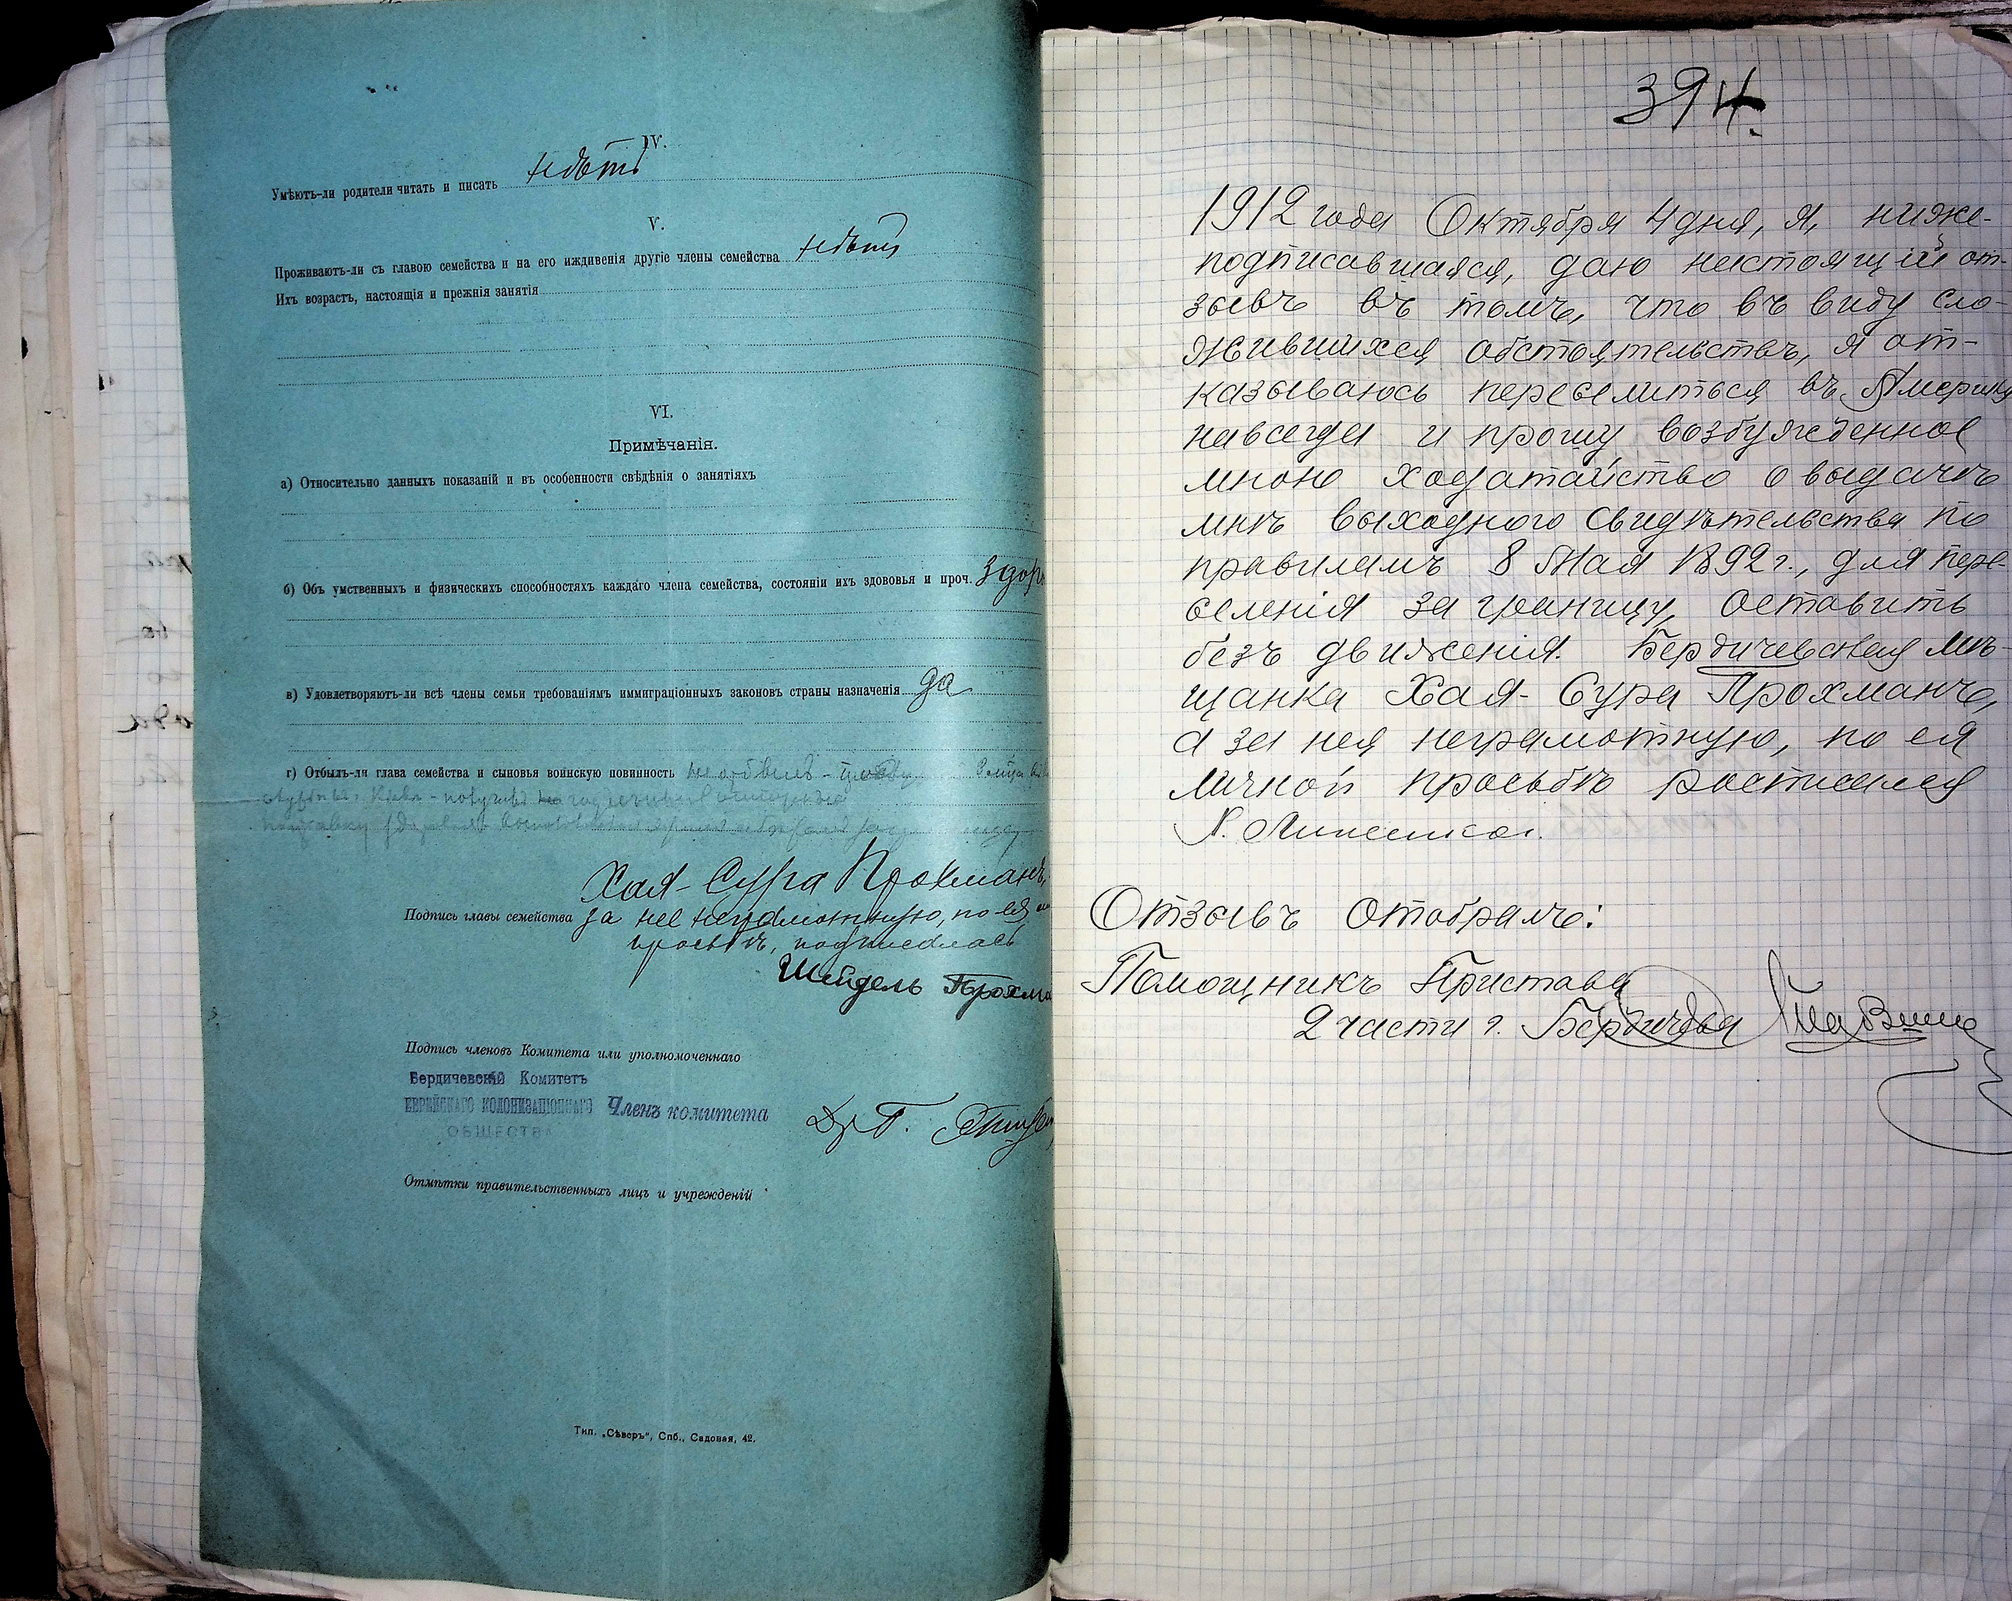 IV.
Умѣютъ-ли родители читать и писать нѣтъ
V.
Проживаютъ-ли съ главою семейства и на его иждивенія другіе члены семейства нѣтъ
Ихъ возрастъ, настоящія и прежнія занятія
VI.
Примѣчанія.
а) Относительно данныхъ показаній и въ особенности свѣдѣнія о занятіяхъ
б) Объ умственныхъ и физическихъ способностяхъ каждаго члена семейства, состояніи ихъ здововья и проч.
в) Удовлетворяютъ-ли всѣ члены семьи требованіямъ иммиграціонныхъ законовъ страны назначенія да
г) Отбылъ-ли глава семейства и сыновья воинскую повинность
Хая-Сура Прохманъ,
Подпись главы семейства за нее неграмотную, по ея
просьбѣ, подписалась
Шейдель Прохма
Подпись членовъ Комитета или уполномоченнаго
Бердичевскій Комитетъ
ЕВРЕЙСКАГО КОЛОНИЗАЦІОННАГО Членъ комитета
ОБЩЕСТВА
Др Г.
Отмѣтки правительственныхъ лицъ и учрежденій
Тип. „Сѣверъ", Спб., Садовая, 42.
394.
1912 года Октября 4 дня, я, ниже-
подписавшаяся, даю настоящій от-
зывъ въ томъ, что въ виду сло-
жившихся обстоятельствъ, я от-
казываюсь переселиться въ Америку
навсегда и прошу возбужденное
мною ходатайство о выдачѣ
мнѣ выходного свидѣтельства по
правиламъ 8 Мая 1892 г., для пере-
селенія за границу, оставить
безъ движенія. Бердичевская мѣ-
щанка Хая-Сура Прохманъ,
а за нея неграмотную, по ея
личной просьбѣ росписался
Отзывъ отобралъ:
Помощникъ Пристава
2 части г. Бердичева